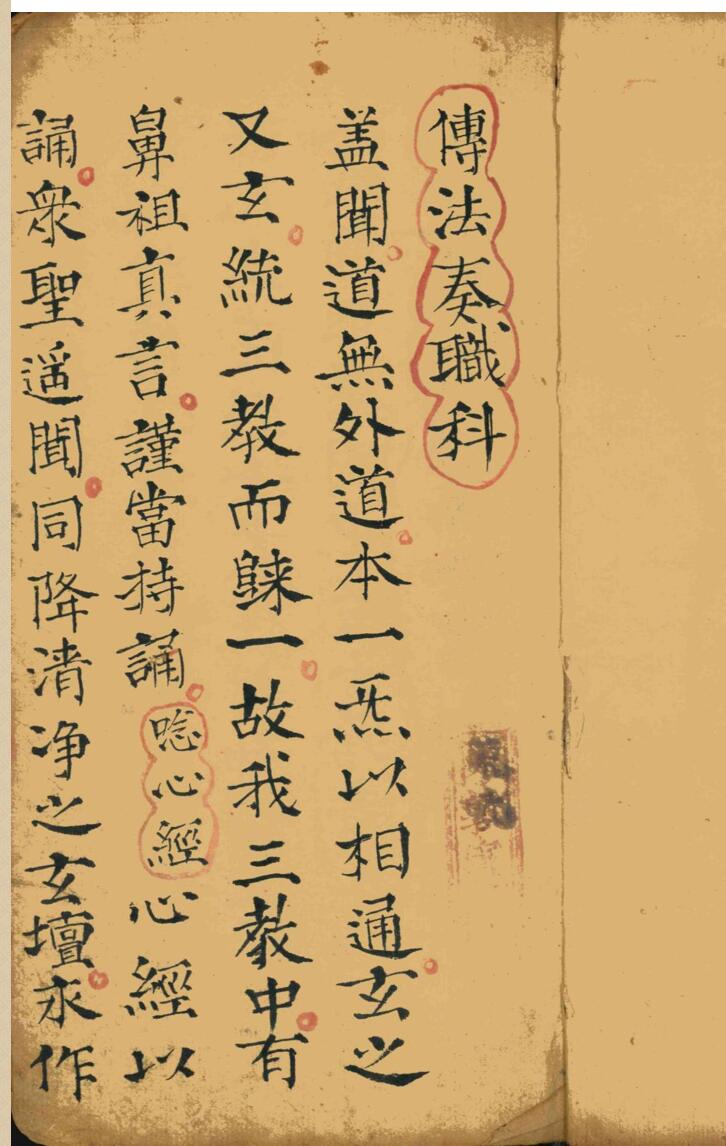 傳法奏職科
盖聞道無外道本一炁以相通玄之
又玄統三教而歸一故我三教中有
鼻祖真言謹當持誦唸心經心經以
誦衆聖遥聞同降清净之玄壇永作